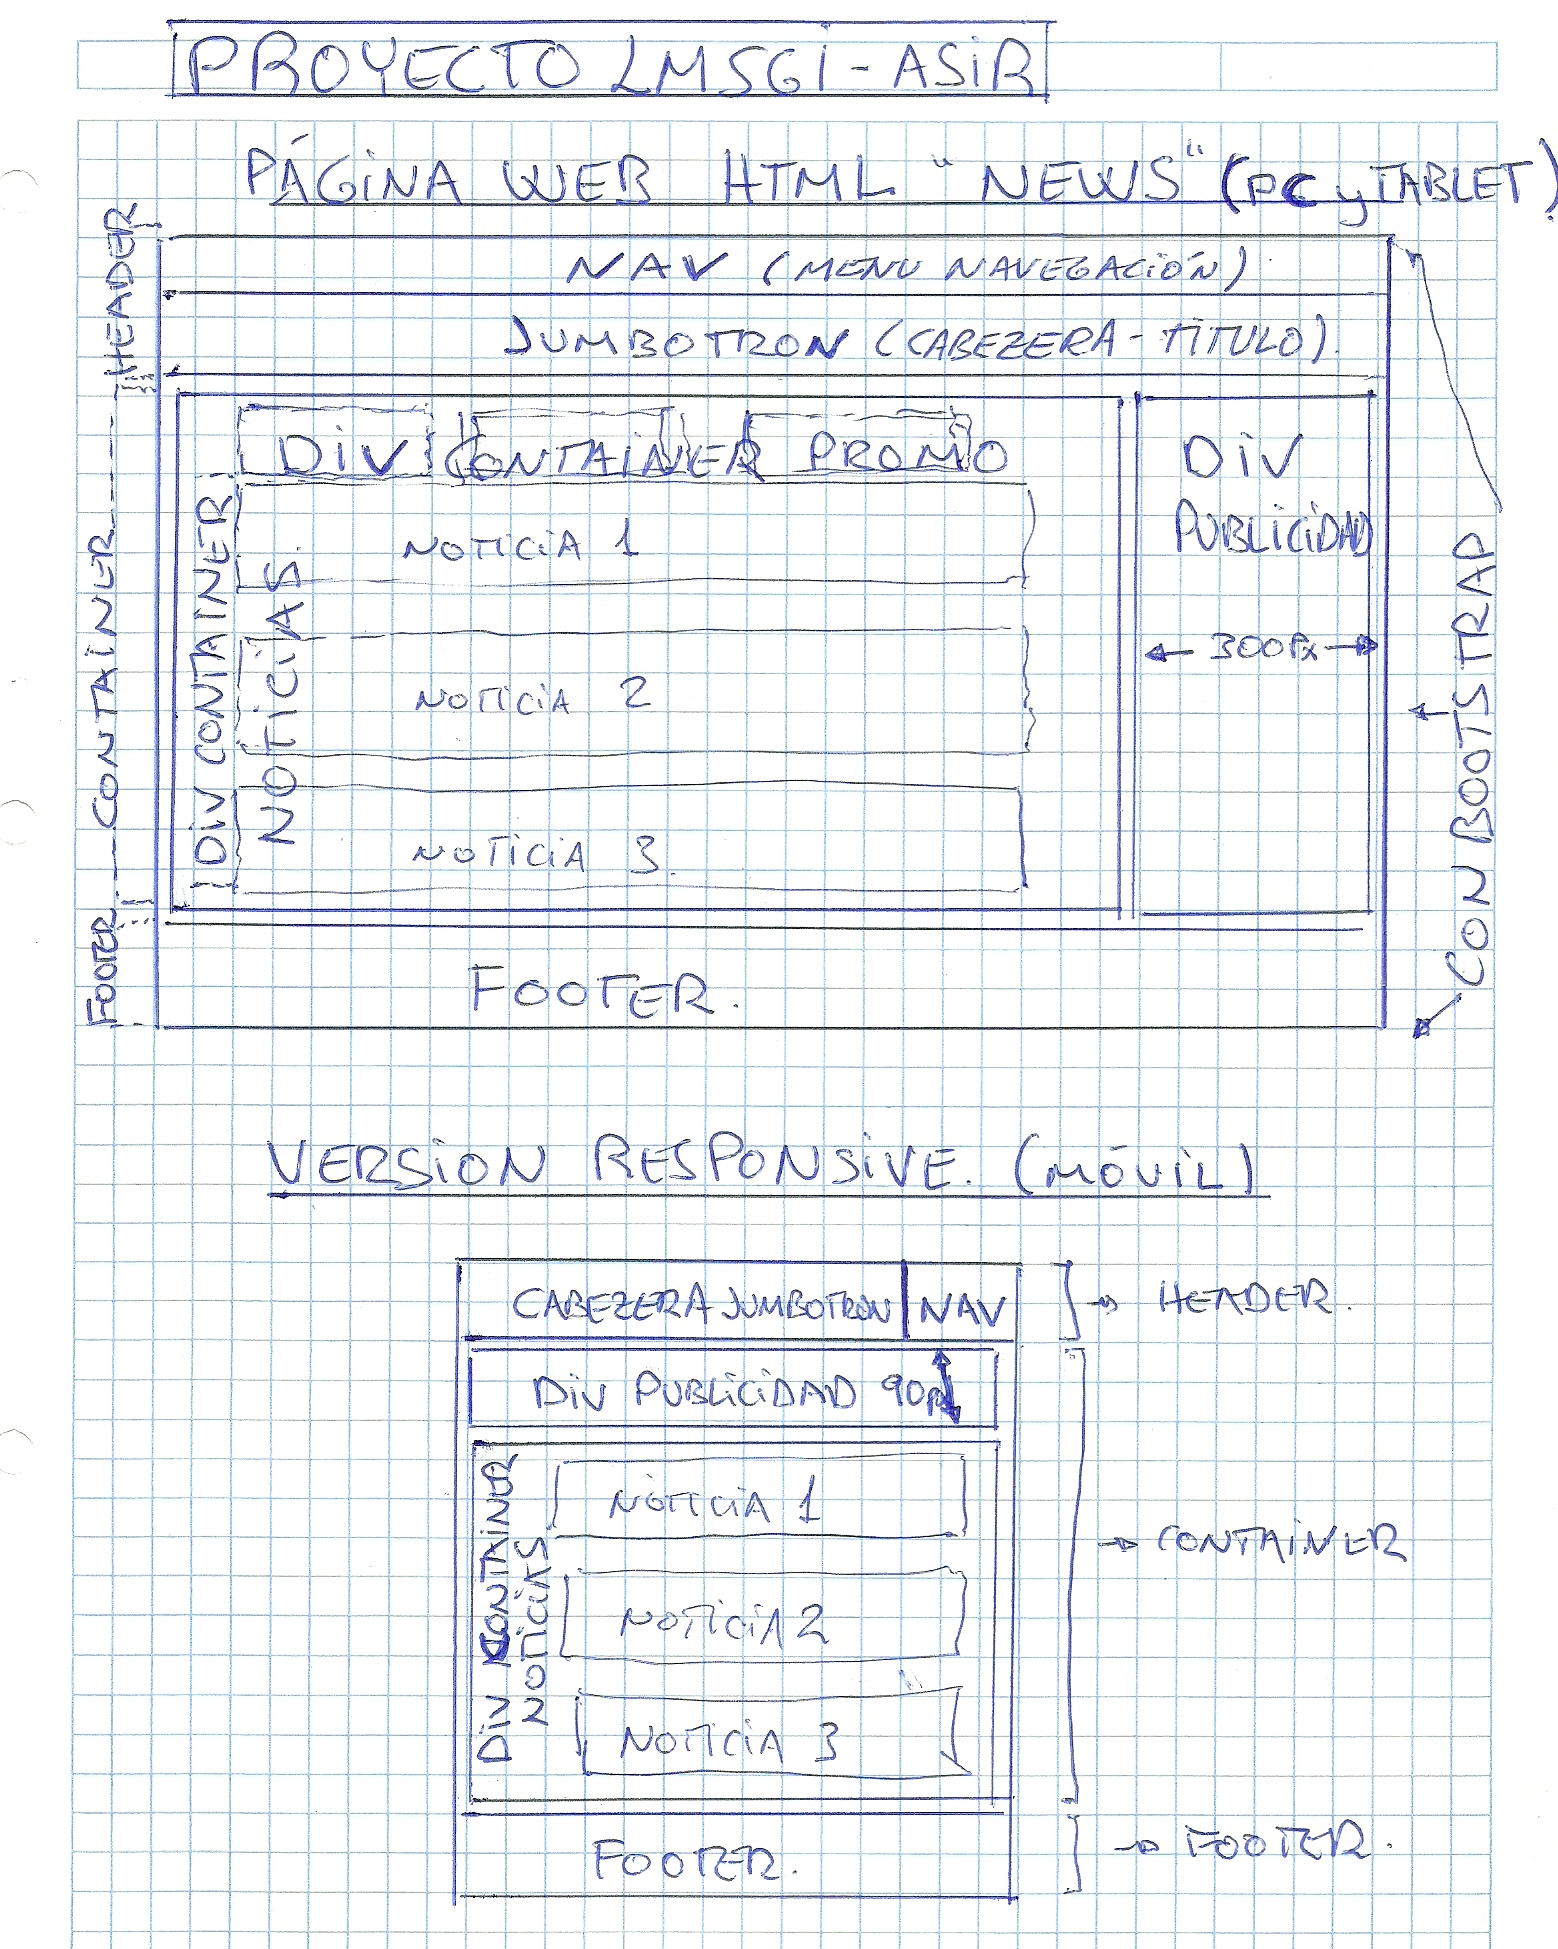 PROYECTO LMSGI-ASIR
PÁGINA WEB HTML "NEWS" (PC y TABLET)
HEADER
NAV (MENU NAVEGACIÓN)
JUMBOTRON (CABEZERA - TITULO).
CONTAINER
DIV CONTAINER PROMO
DIV CONTAINER
NOTICIAS.
NOTICIA 1
NOTICIA 2
NOTICIA 3.
DIV
PUBLICIDAD
300Px
CON BOOTSTRAP
FOOTER
FOOTER.
VERSION RESPONSIVE. (MÓVIL)
CABEZERA JUMBOTRON NAV
HEADER.
DIV PUBLICIDAD 90px
DIV CONTAINER
NOTICIAS
NOTICIA 1
NOTICIA 2
NOTICIA 3
CONTAINER
FOOTER.
FOOTER.